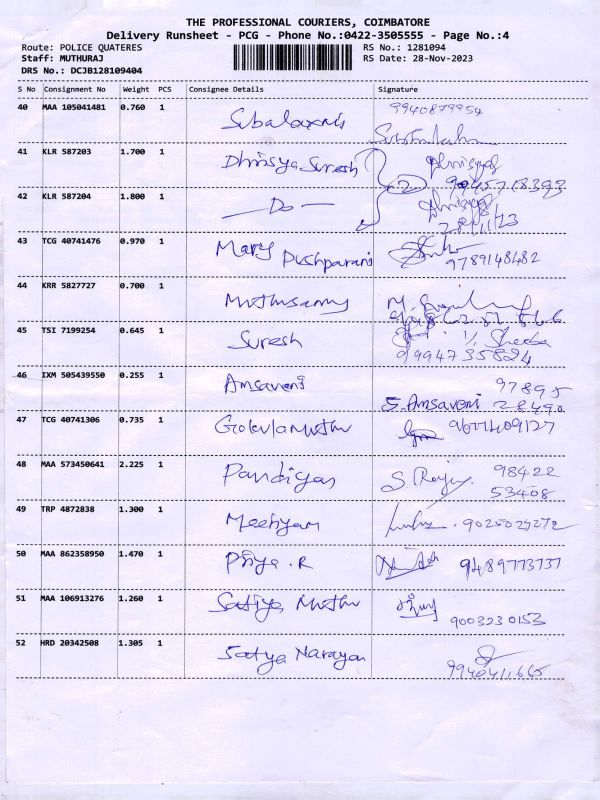 THE PROFESSIONAL COURIERS, COIMBATORE
Delivery Runsheet - PCG - Phone No.:0422-3505555 - Page No.:4
Route: POLICE QUATERES RS No.: 1281094
Staff: MUTHURAJ RS Date: 28-Nov-2023
DRS No.: DCJB128109404
S No Consignment No Weight PCS Consignee Details Signature
40 MAA 105041481 0.760 1 9940879954
Subalaxmi
41 KLR 587203 1.700 1 Dhrisya Suresh
42 KLR 587204 1.800 1 2
— Do —
28/11/23
43 TCG 40741476 0.970 1 Mary Pushparani
9789148482
44 KRR 5827727 0.700 1
Muthusamy
45 TSI 7199254 0.645 1 Suresh
9994735824
46 IXM 505439550 0.255 1 Amsaveni 97895
S. Amsaveni 28490
47 TCG 40741306 0.735 1 Gokulamuthu 9677409127
48 MAA 573450641 2.225 1 Pandiyan 98422
53408
49 TRP 4872838 1.300 1
50 MAA 862358950 1.470 1 Priya.R 9489773737
51 MAA 106913276 1.260 1 Satiya Muthu
9003230153
52 HRD 20342508 1.305 1 Satya Narayan
9940411665